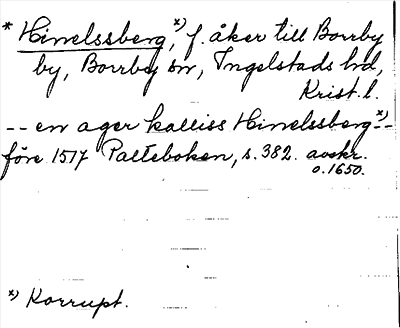 * Hinelssberg,ˣ⁾ f. åker till Borrby
by, Borrby sn, Ingelstads hd,
Krist. l.
-- en ager kalliss Hinelssbergˣ⁾--
före 1517 Palteboken, s. 382. avskr.
o. 1650.
ˣ⁾ Korrupt.